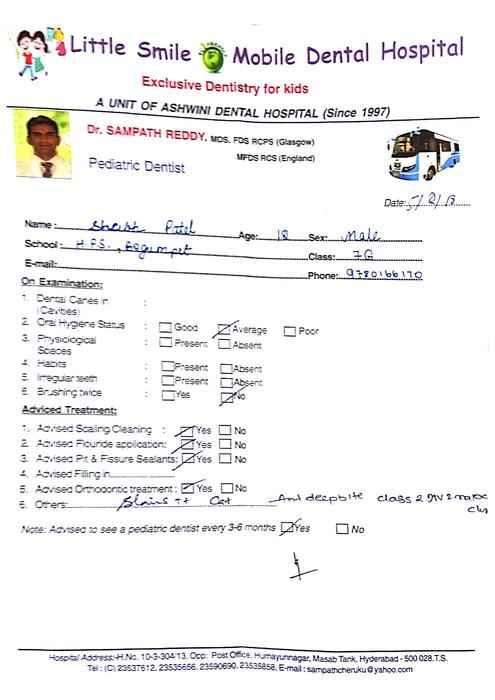 Little Smile Mobile Dental Hospital
Exclusive Dentistry for kids
A UNIT OF ASHWINI DENTAL HOSPITAL (Since 1997)
Dr. SAMPATH REDDY, MDS. FDS RCPS (Glasgow)
MFDS RCS (England)
Pediatric Dentist
Date: 5/2/13
Name: Patel Age: 12 Sex: Male
School: H.P.S., Begumpet Class: 7G
E-mail: Phone: 9780166170
On Examination:
1. Dental Caries in :
(Cavities)
2. Oral Hygiene Status : Good Average Poor
3. Physiological : Present Absent
Spaces
4. Habits : Present Absent
5. Irregular teeth : Present Absent
6. Brushing twice : Yes No
Adviced Treatment:
1. Advised Scaling Cleaning : Yes No
2. Advised Flouride application: Yes No
3. Advised Pit & Fissure Sealants: Yes No
4. Advised Filling in
5. Advised Orthodontic treatment: Yes No
6. Others: Ant deepbite class 2
Note: Advised to see a pediatric dentist every 3-6 months Yes No
Hospital Address:-H.No. 10-3-304/13, Opp: Post Office, Humayunnagar, Masab Tank, Hyderabad - 500 028.T.S.
Tel : (C) 23537612, 23535656, 23590690, 23535858, E-mail : sampathcheruku@yahoo.com